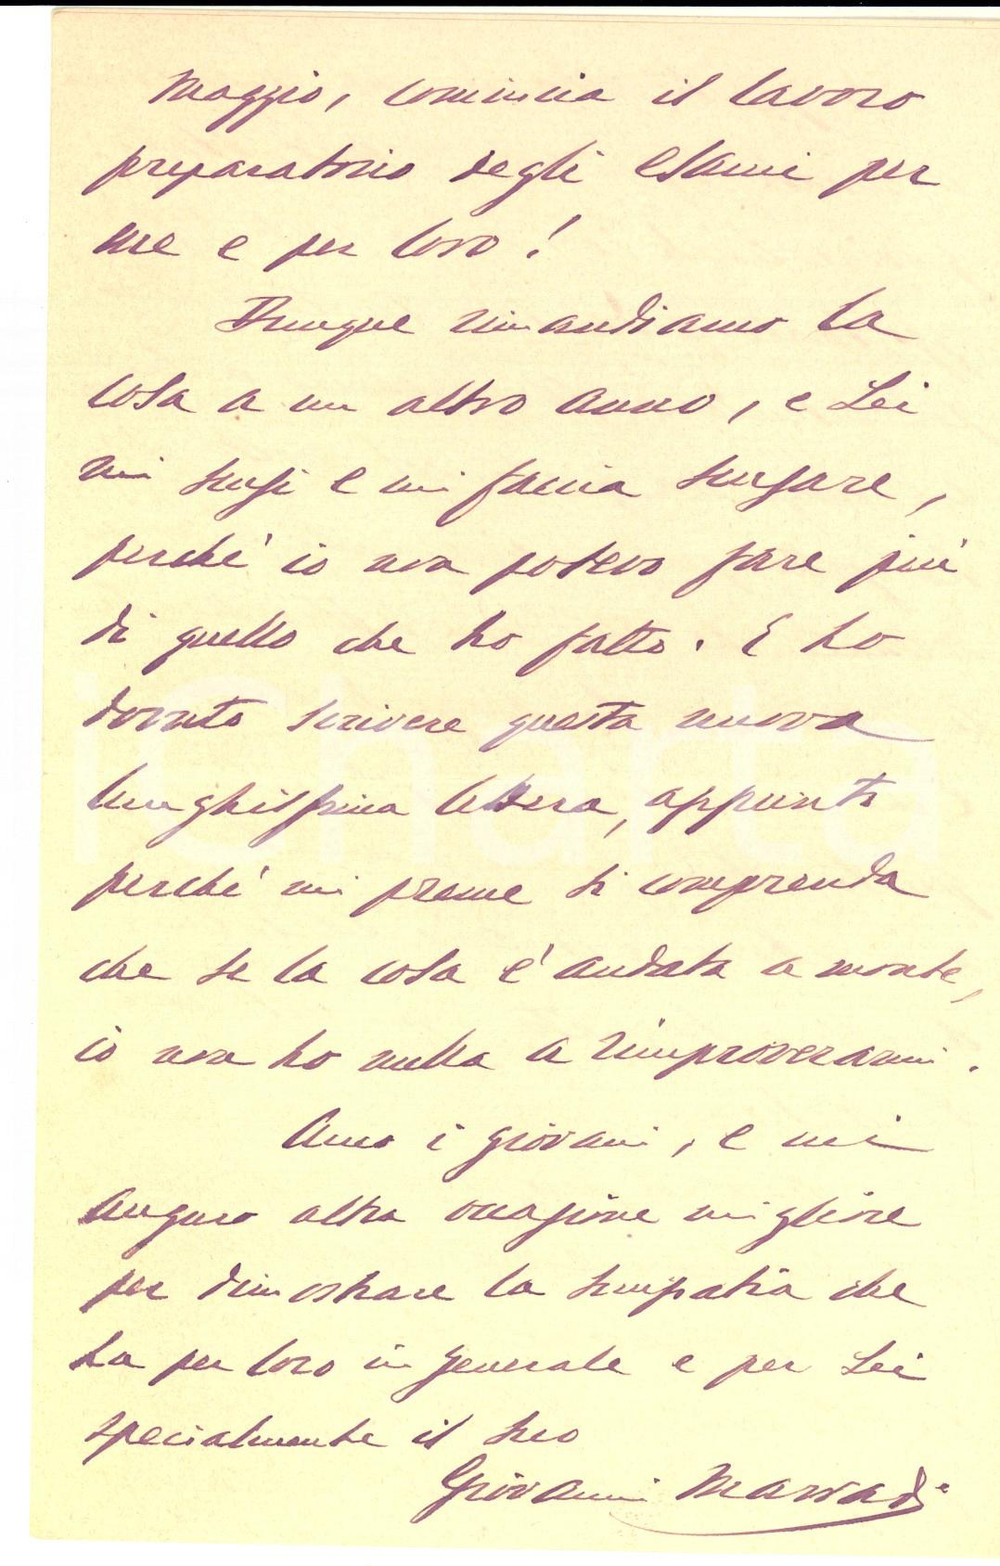 Maggio, comincia il lavoro
preparatorio degli esami per
me e per loro!
Dunque rimandiamo la
cosa a un altro anno, e Lei
mi scusi e mi faccia scusare,
perché io non potevo fare più
di quello che ho fatto. E ho
dovuto scrivere questa nuova
lunghissima lettera, appunto
perché mi preme si comprenda
che se la cosa è andata a monte,
io non ho nulla a rimproverarmi.
Amo i giovani, e mi
auguro altra occasione migliore
per dimostrare la simpatia che
ha per loro in generale e per Lei
specialmente il suo
Giovanni Marradi
iCharta